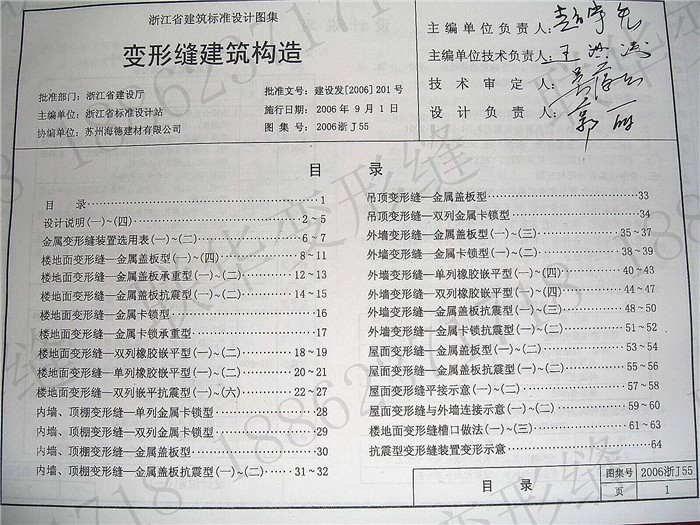 浙江省建筑标准设计图集
变形缝建筑构造
批准部门：浙江省建设厅
主编单位：浙江省标准设计站
协编单位：苏州海德建材有限公司
批准文号：建设发[2006]201号
施行日期：2006年9月1日
图集号：2006浙J55
主编单位负责人：
主编单位技术负责人：
技术审定人：
设计负责人：
目 录
目 录 1
设计说明(一)~(四) 2~5
金属变形缝装置选用表(一)~(二) 6~7
楼地面变形缝—金属盖板型(一)~(四) 8~11
楼地面变形缝—金属盖板承重型(一)~(二) 12~13
楼地面变形缝—金属盖板抗震型(一)~(二) 14~15
楼地面变形缝—金属卡锁型 16
楼地面变形缝—金属卡锁承重型 17
楼地面变形缝—双列橡胶嵌平型(一)~(二) 18~19
楼地面变形缝—单列橡胶嵌平型(一)~(二) 20~21
楼地面变形缝—双列嵌平抗震型(一)~(六) 22~27
内墙、顶棚变形缝—单列金属卡锁型 28
内墙、顶棚变形缝—双列金属卡锁型 29
内墙、顶棚变形缝—金属盖板型 30
内墙、顶棚变形缝—金属盖板抗震型(一)~(二) 31~32
吊顶变形缝—金属盖板型 33
吊顶变形缝—双列金属卡锁型 34
外墙变形缝—金属盖板型(一)~(三) 35~37
外墙变形缝—金属卡锁型(一)~(二) 38~39
外墙变形缝—单列橡胶嵌平型(一)~(四) 40~43
外墙变形缝—双列橡胶嵌平型(一)~(四) 44~47
外墙变形缝—金属盖板抗震型(一)~(三) 48~50
外墙变形缝—金属卡锁抗震型(一)~(二) 51~52
屋面变形缝—金属盖板型(一)~(二) 53~54
屋面变形缝—金属盖板抗震型(一)~(二) 55~56
屋面变形缝平接示意(一)~(二) 57~58
屋面变形缝与外墙连接示意(一)~(二) 59~60
楼地面变形缝槽口做法(一)~(三) 61~63
抗震型变形缝装置变形示意 64
目 录
图集号 2006浙J55
页 1